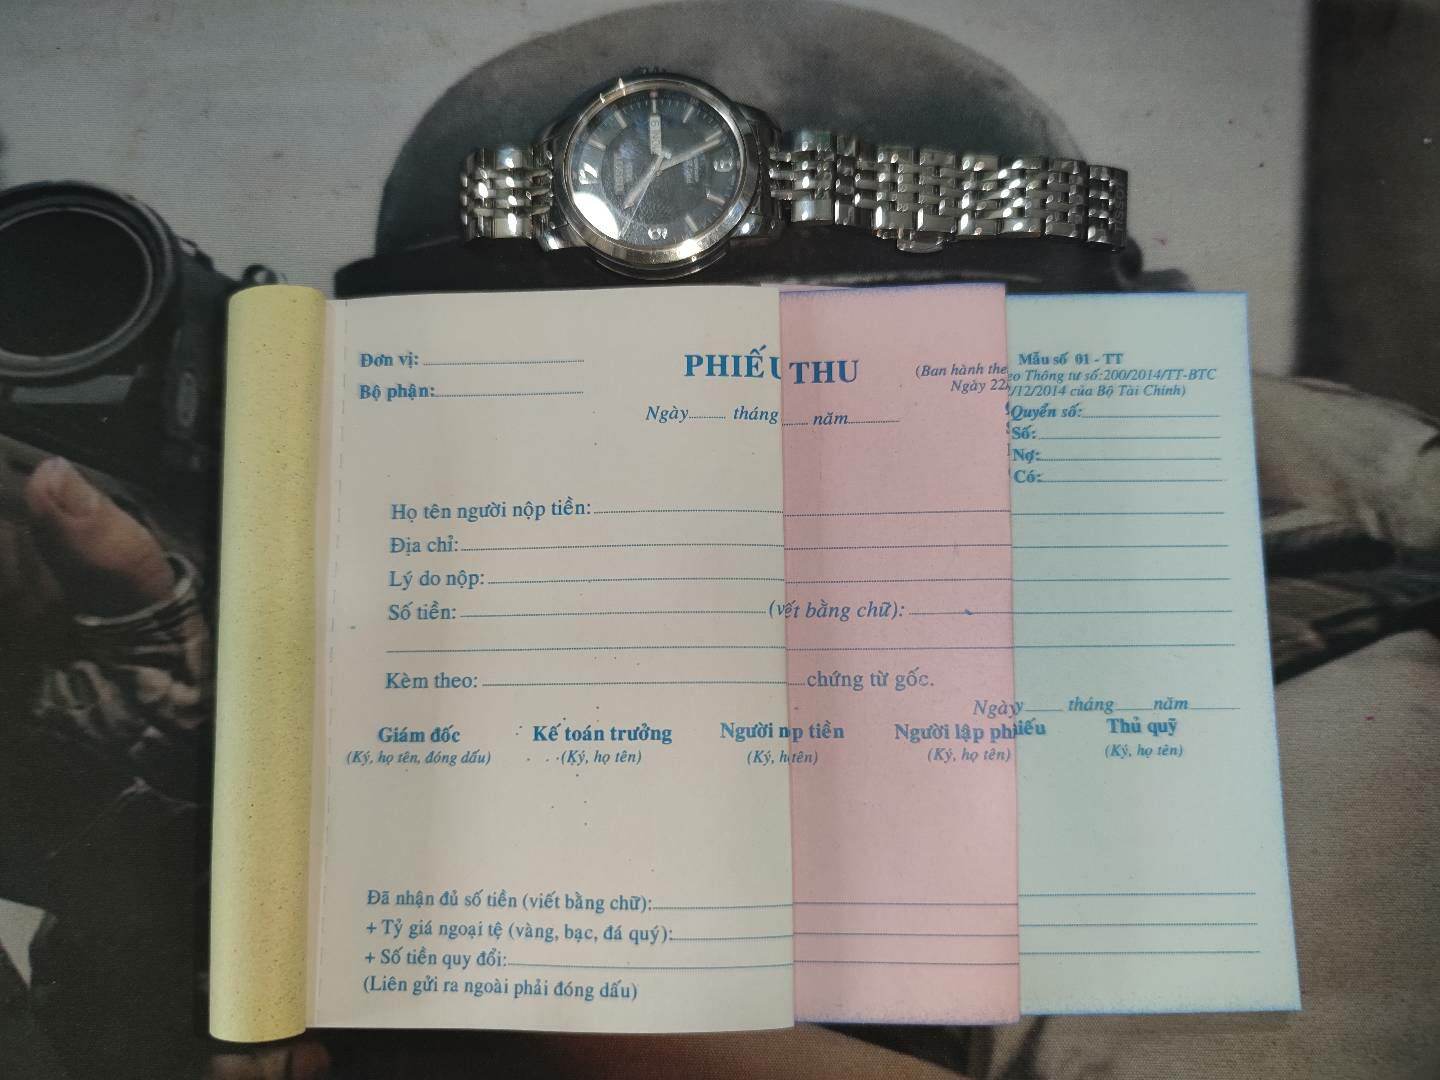 Đơn vị:
Bộ phận:
PHIẾU THU
Ngày tháng năm
Mẫu số 01 - TT
(Ban hành theo Thông tư số:200/2014/TT-BTC
Ngày 22/12/2014 của Bộ Tài Chính)
Quyển số:
Số:
Nợ:
Có:
Họ tên người nộp tiền:
Địa chỉ:
Lý do nộp:
Số tiền: (vết bằng chữ):
Kèm theo: chứng từ gốc.
Ngày tháng năm
Giám đốc Kế toán trưởng Người np tiền Người lập phiếu Thủ quỹ
(Ký, họ tên, đóng dấu) (Ký, họ tên) (Ký, h tên) (Ký, họ tên) (Ký, họ tên)
Đã nhận đủ số tiền (viết bằng chữ):
+ Tỷ giá ngoại tệ (vàng, bạc, đá quý):
+ Số tiền quy đổi:
(Liên gửi ra ngoài phải đóng dấu)